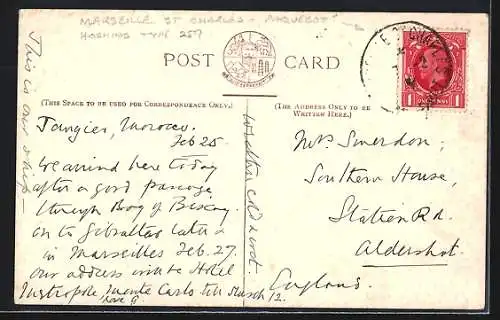 MARSEILLE ST CHARLES - PAQUEBOT
HOSKING TYPE 257
This is our ship -
POST CARD
(THIS SPACE TO BE USED FOR CORRESPONDENCE ONLY.)
(THE ADDRESS ONLY TO BE
WRITTEN HERE.)
1 ONE PENNY 1
Tangier, Morocco.
Feb 25.
We arrived here today
after a good passage
through Bay of Biscay
on to Gibraltar later &
in Marseilles Feb. 27.
our address will be Hotel
Metropole, Monte Carlo till March 12.
Weather cold &
Mrs Swerdon,
Southern House,
Station Rd.
Aldershot.
England.